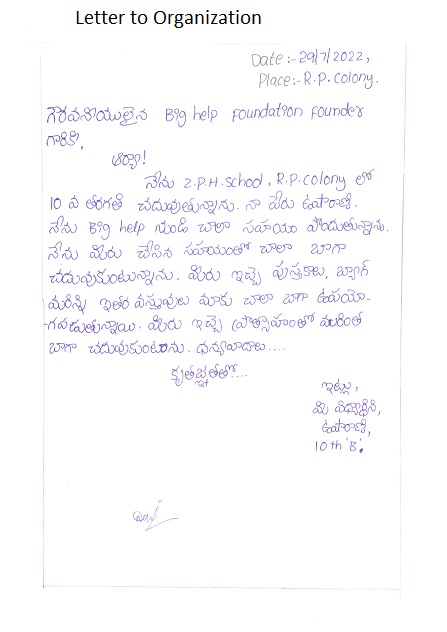 Letter to Organization
Date :- 29/7/2022,
Place:- R.P. Colony.
గౌరవనీయులైన Big help foundation founder
గారికి,
ఆర్యా!
నేను Z.P.H. School, R.P. Colony లో
10 వ తరగతి చదువుతున్నాను. నా పేరు ఉషారాణి.
నేను Big help నుండి చాలా సహాయం పొందుతున్నాను.
నేను మీరు చేసిన సహాయంతో చాలా బాగా
చదువుకుంటున్నాను. మీరు ఇచ్చె పుస్తకాలు, బ్యాగ్
మరిన్ని ఇతర వస్తువులు మాకు చాలా బాగా ఉపయో-
-గపడుతున్నాయి. మీరు ఇచ్చె ప్రోత్సాహంతో మరింత
బాగా చదువుకుంటాను. ధన్యవాదాలు....
కృతజ్ఞతతో...
ఇట్లు,
మీ విద్యార్థిని,
ఉషారాణి,
10th 'B'.